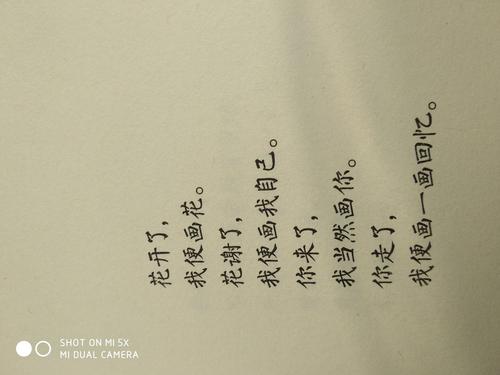 花开了，
我便画花。
花谢了，
我便画我自己。
你来了，
我当然画你。
你走了，
我便画一画回忆。
SHOT ON MI 5X
MI DUAL CAMERA